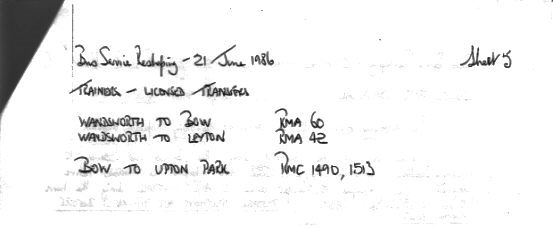 Bus Service Reshaping - 21 June 1986 Sheet 5
TRAINERS - LICENSED TRANSFERS
WANDSWORTH TO BOW RMA 60
WANDSWORTH TO LEYTON RMA 42
BOW TO UPTON PARK RMC 1490, 1513